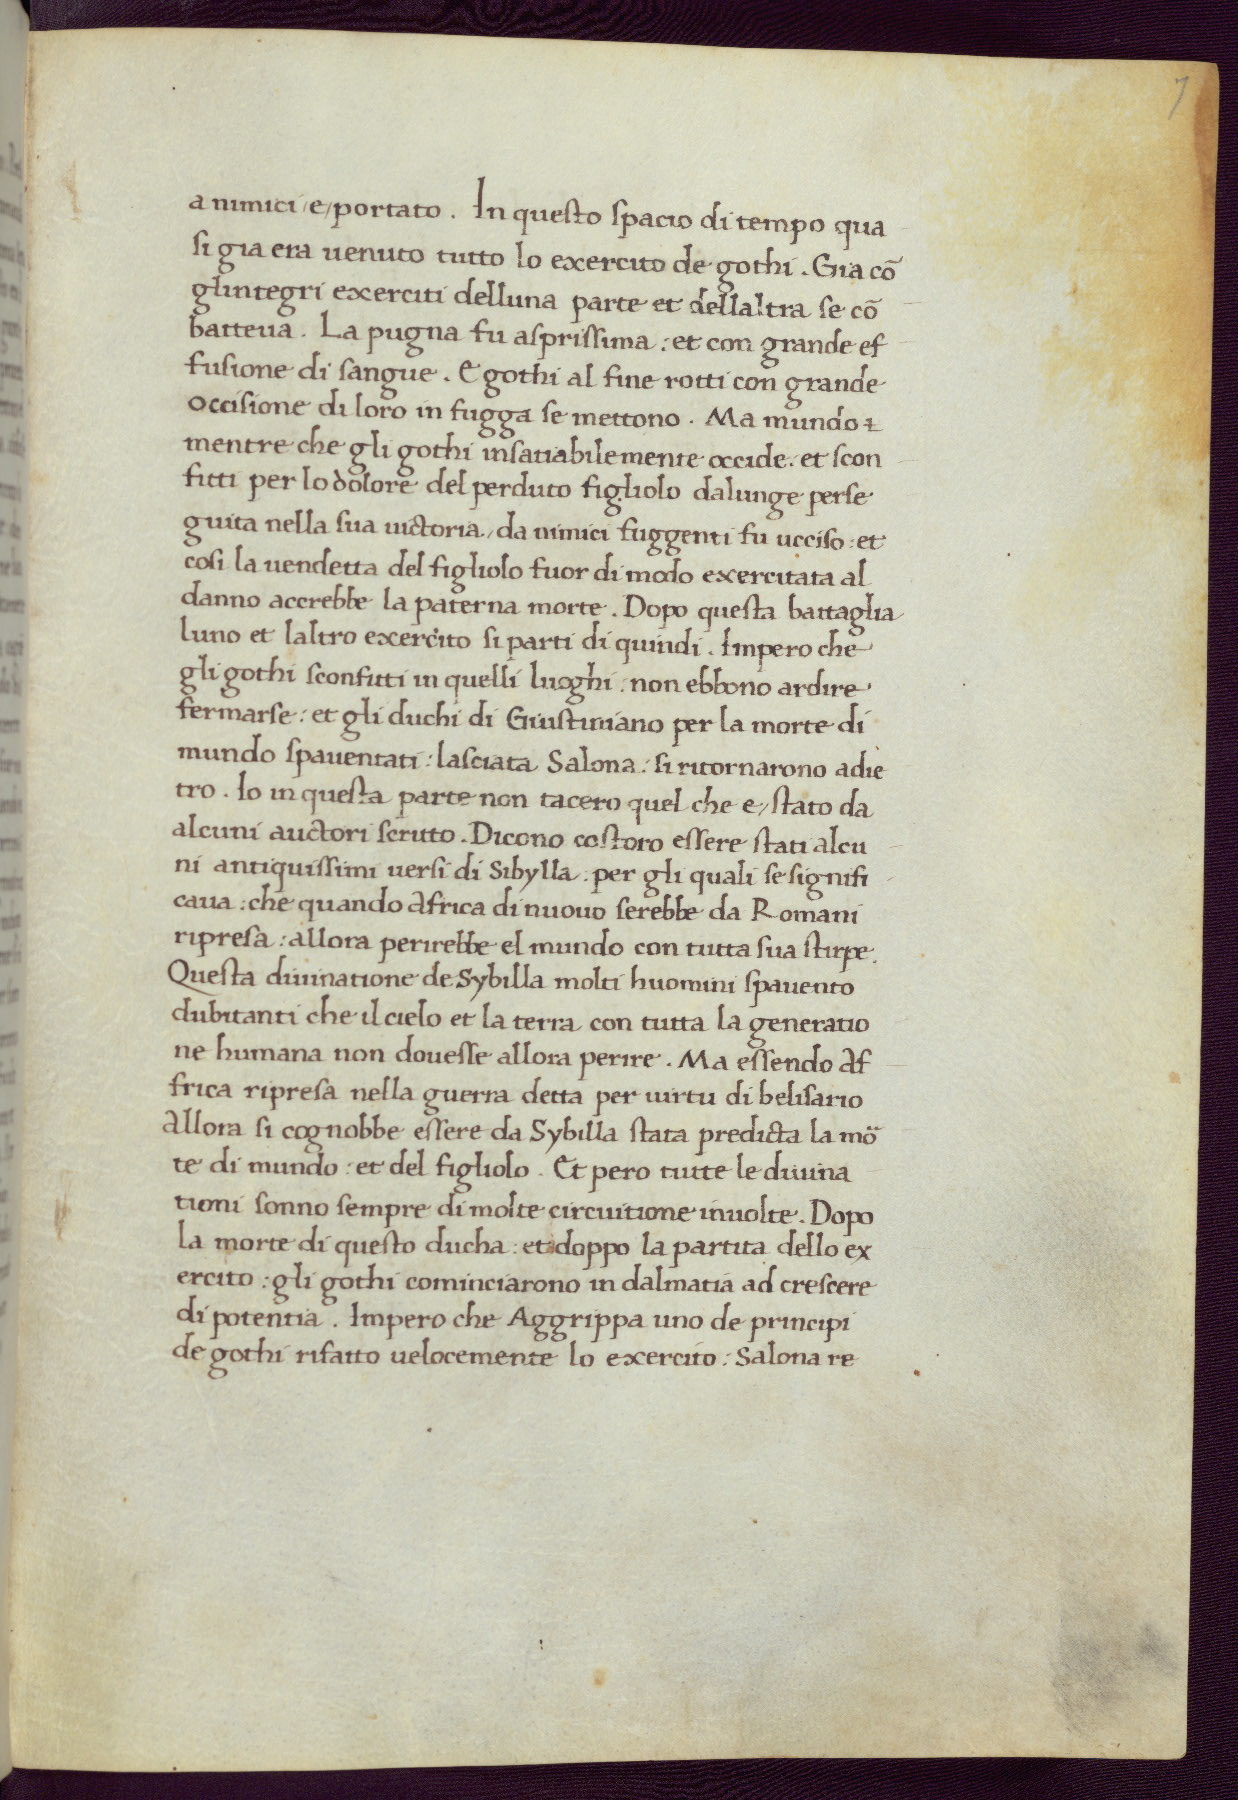 7
a nimici /e/ portato . In questo spacio di tempo qua
si gia era uenuto tutto lo exercito de gothi . Gia cō
glintegri exerciti delluna parte et dellaltra se cō
batteua . La pugna fu asprissima : et con grande ef
fusione di sangue . E gothi al fine rotti con grande
occisione di loro in fugga se mettono . Ma mundo
mentre che gli gothi insatiabilemente occide : et scon
fitti per lo dolore del perduto figliolo dalunge perse
guita nella sua uictoria / da nimici fuggenti fu ucciso : et
cosi la uendetta del figliolo fuor di modo exercitata al
danno accrebbe la paterna morte . Dopo questa battaglia
luno et laltro exercito si parti di quindi . Impero che
gli gothi sconfitti in quelli luoghi : non ebbono ardire
fermarse : et gli duchi di Giustiniano per la morte di
mundo spauentati : lasciata Salona : si ritornarono adie
tro . Io in questa parte non tacero quel che e / stato da
alcuni auctori scritto . Dicono costoro essere stati alcu
ni antiquissimi uersi di Sibylla : per gli quali se signifi
caua : che quando Africa di nuouo serebbe da Romani
ripresa : allora perirebbe el mundo con tutta sua stirpe .
Questa diuinatione de Sybilla molti huomini spauento
dubitanti che il cielo et la terra con tutta la generatio
ne humana non douesse allora perire . Ma essendo Af
frica ripresa nella guerra detta per uirtu di belisario
Allora si cognobbe essere da Sybilla stata predicta la mo
te di mundo : et del figliolo . Et pero tutte le diuina
tioni sonno sempre di molte circuitione inuolte . Dopo
la morte di questo ducha : et doppo la partita dello ex
ercito : gli gothi cominciarono in dalmatia ad crescere
di potentia . Impero che Aggrippa uno de principi
de gothi rifatto uelocemente lo exercito : Salona re